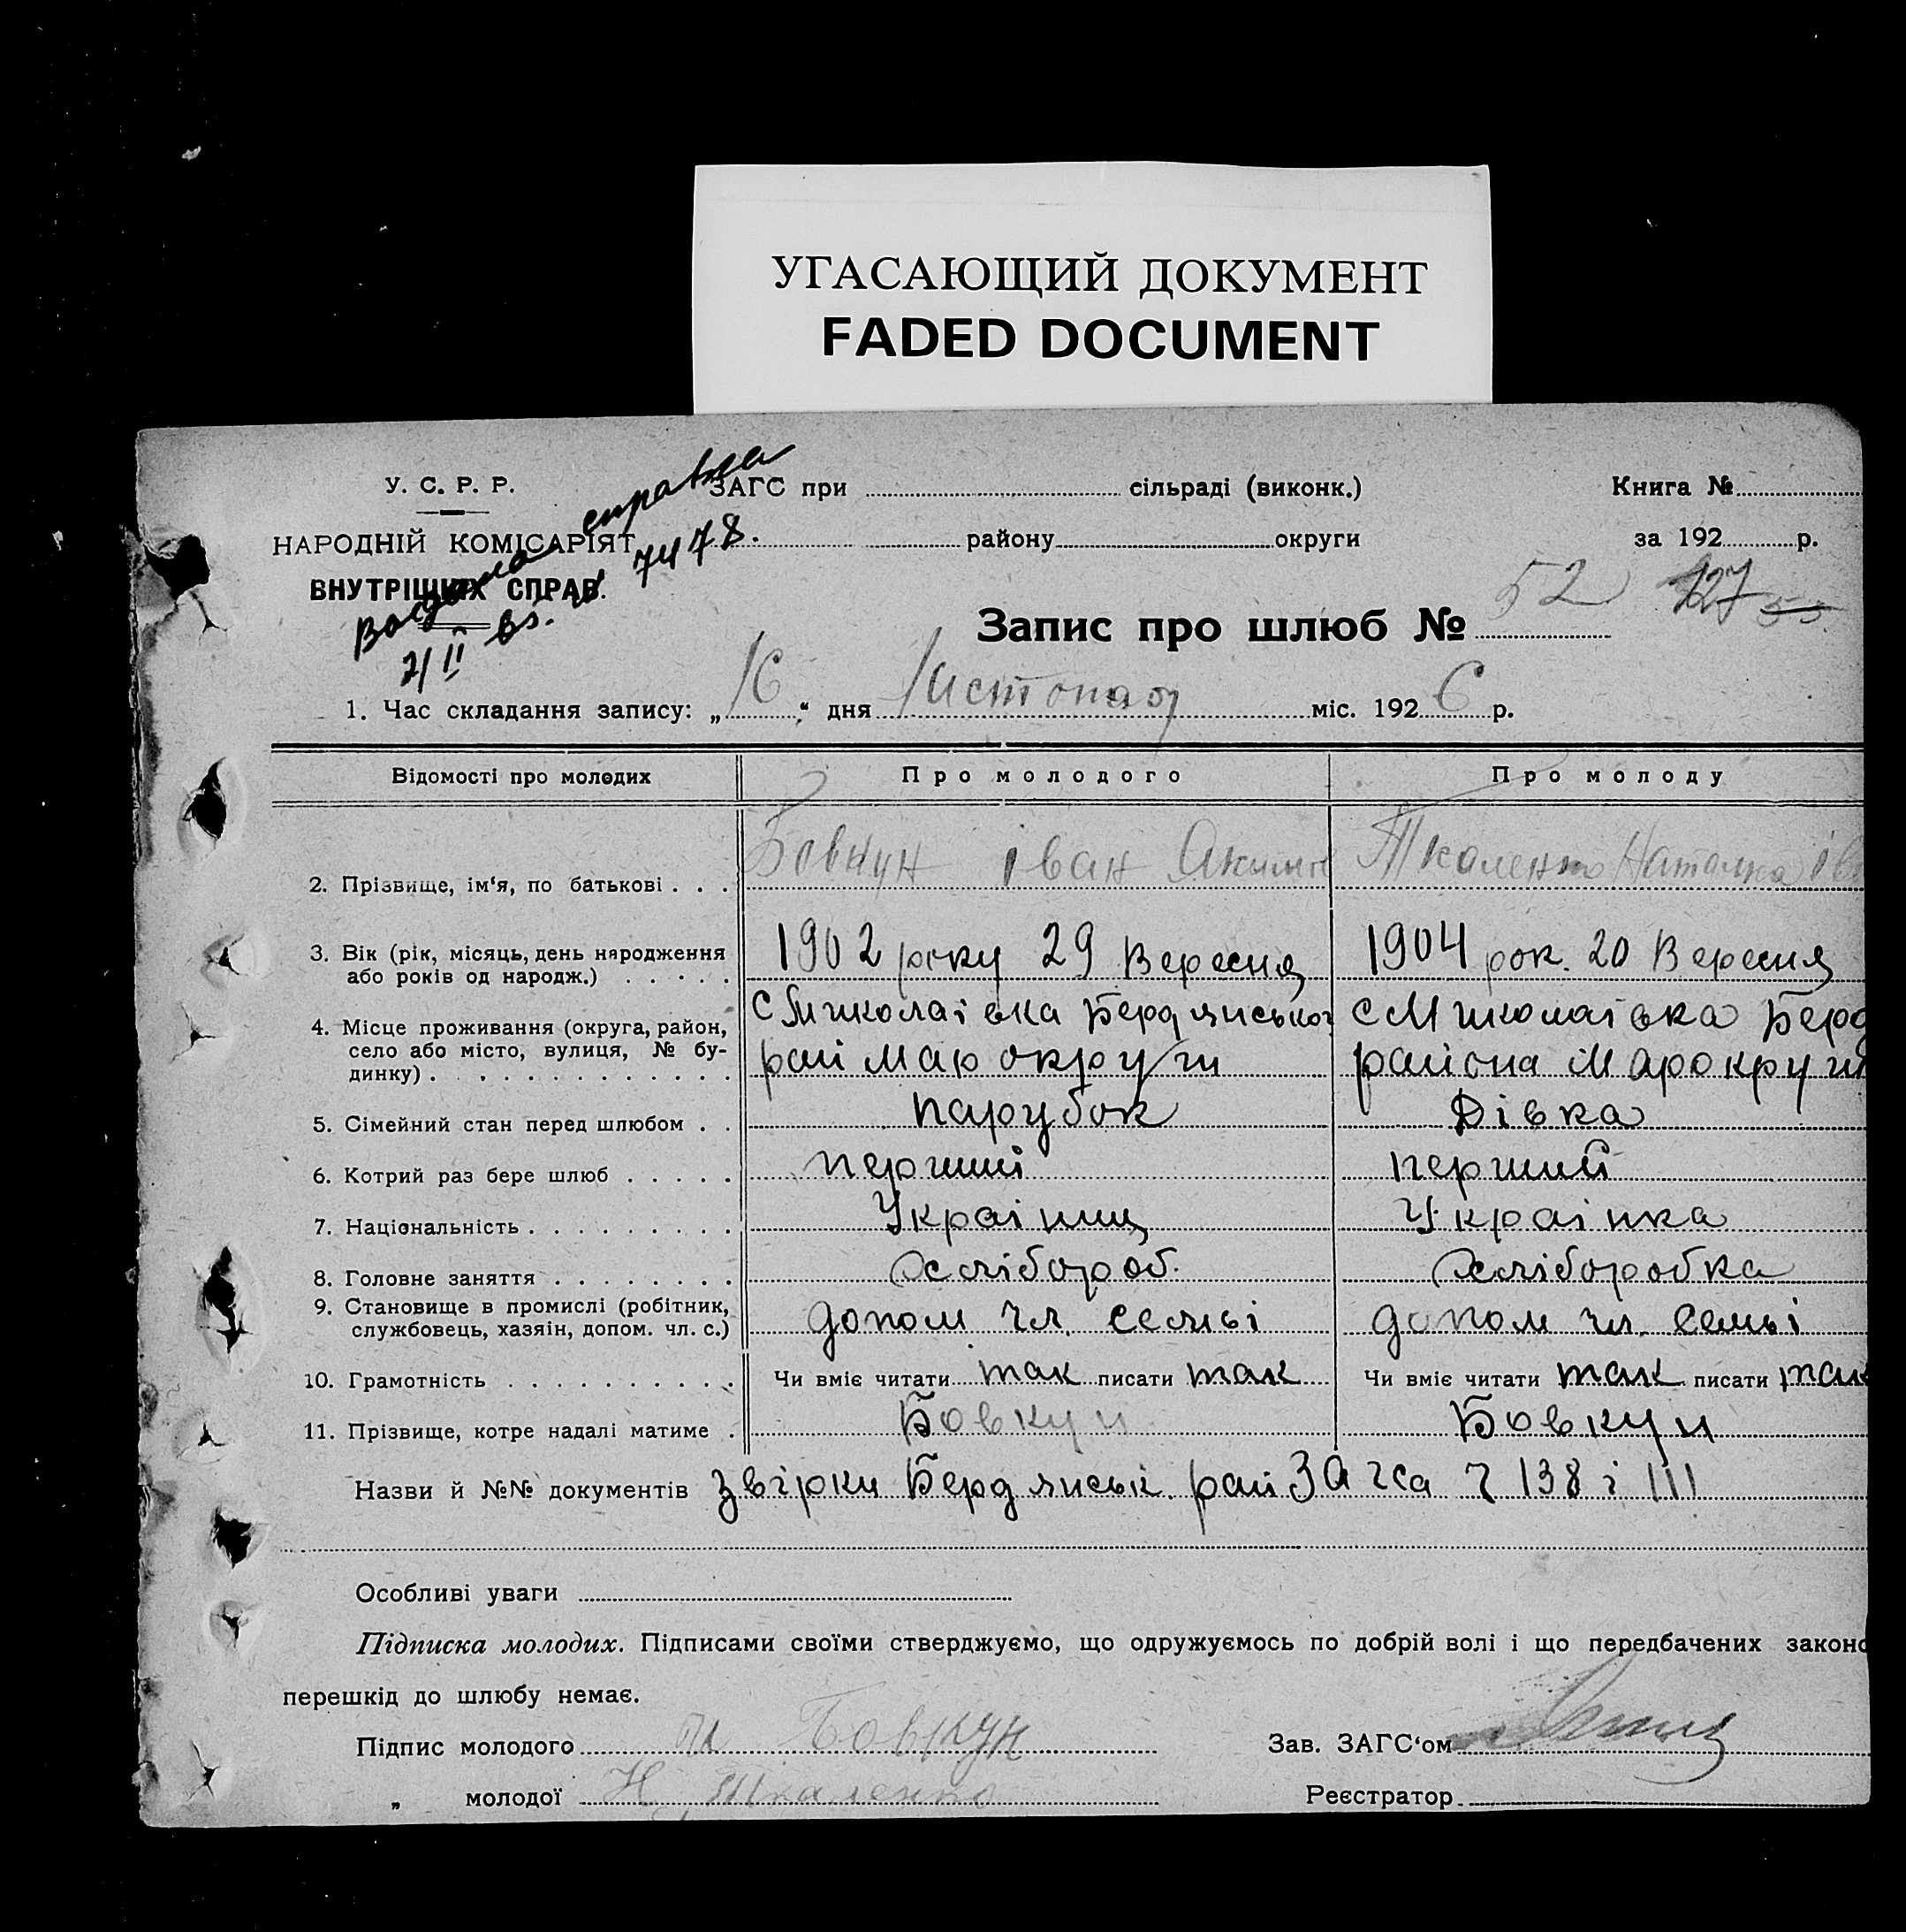 УГАСАЮЩИЙ ДОКУМЕНТ
FADED DOCUMENT
У. С. Р. Р.
НАРОДНІЙ КОМІСАРІЯТ
ВНУТРІШНІХ СПРАВ.
справка
7478.
2/II 65.
ЗАГС при сільраді (виконк.)
району округи
Книга №
за 192 р.
Запис про шлюб № 52 127 53
1. Час складання запису: „16“ дня Листопад міс. 1926 р.
Відомості про молодих Про молодого Про молоду
2. Прізвище, ім‘я, по батькові . . . Бовкун іван Якимів Ткаленко Наталка іва
3. Вік (рік, місяць, день народження 1902 року 29 Вересня 1904 рок. 20 Вересня
або років од народж.) . . . .
4. Місце проживання (округа, район, С Миколаівка Бердянськог С Миколаівка Берд
село або місто, вулиця, № бу- рай Мар округи района Марокруги
динку) . . . . . . . . . . . .
5. Сімейний стан перед шлюбом . . парубок Дівка
6. Котрий раз бере шлюб . . . . . перший перший
7. Національність . . . . . . . . . Украінец Украінка
8. Головне заняття . . . . . . . . Хлібороб. Хліборобка
9. Становище в промислі (робітник, допом чл. семьі допом чл. семьі
службовець, хазяін, допом. чл. с.)
10. Грамотність . . . . . . . . . . . Чи вміє читати так писати так Чи вміє читати так писати так
11. Прізвище, котре надалі матиме . Бовкун Бовкун
Назви й №№ документів звірки Бердянськ. рай ЗАгса Ч 138 і 111
Особливі уваги
Підписка молодих. Підписами своїми стверджуємо, що одружуємось по добрій волі і що передбачених законо
перешкід до шлюбу немає.
Підпис молодого Бовкун Зав. ЗАГС‘ом
„ молодої Н Ткаленко Реєстратор